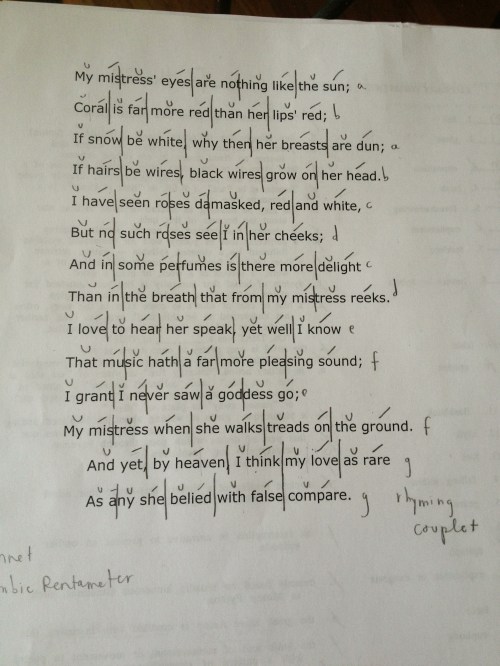 My mistress' eyes are nothing like the sun; a
Coral is far more red than her lips' red; b
If snow be white, why then her breasts are dun; a
If hairs be wires, black wires grow on her head. b
I have seen roses damasked, red and white, c
But no such roses see I in her cheeks; d
And in some perfumes is there more delight c
Than in the breath that from my mistress reeks. d
I love to hear her speak, yet well I know e
That music hath a far more pleasing sound; f
I grant I never saw a goddess go; e
My mistress when she walks treads on the ground. f
And yet, by heaven, I think my love as rare g
As any she belied with false compare. g
rhyming
couplet
nnet
mbic Pentameter